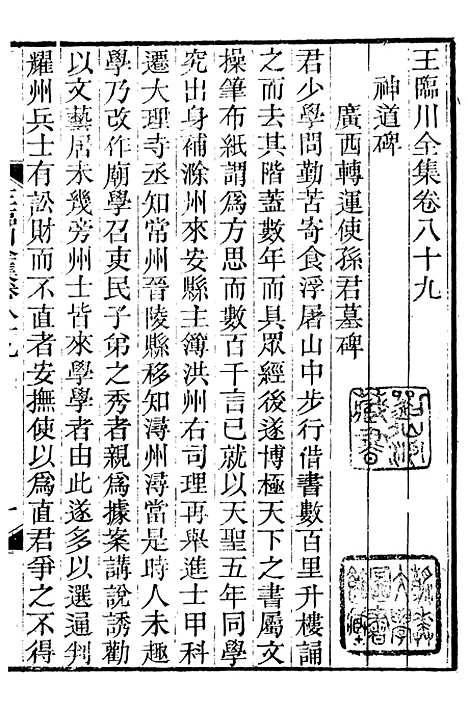 王臨川全集卷八十九
神道碑
廣西轉運使孫君墓碑
君少學問勤苦寄食浮屠山中步行借書數百里升樓誦
之而去其階蓋數年而具眾經後遂博極天下之書屬文
操筆布紙謂爲方思而數百千言已就以天聖五年同學
究出身補滁州來安縣主簿洪州右司理再舉進士甲科
遷大理寺丞知常州晉陵縣移知潯州潯當是時人未趨
學乃改作廟學召吏民子弟之秀者親爲據案講說誘勸
以文藝居未幾旁州士皆來學學者由此遂多以選通判
耀州兵士有訟財而不直者安撫使以爲直君爭之不得